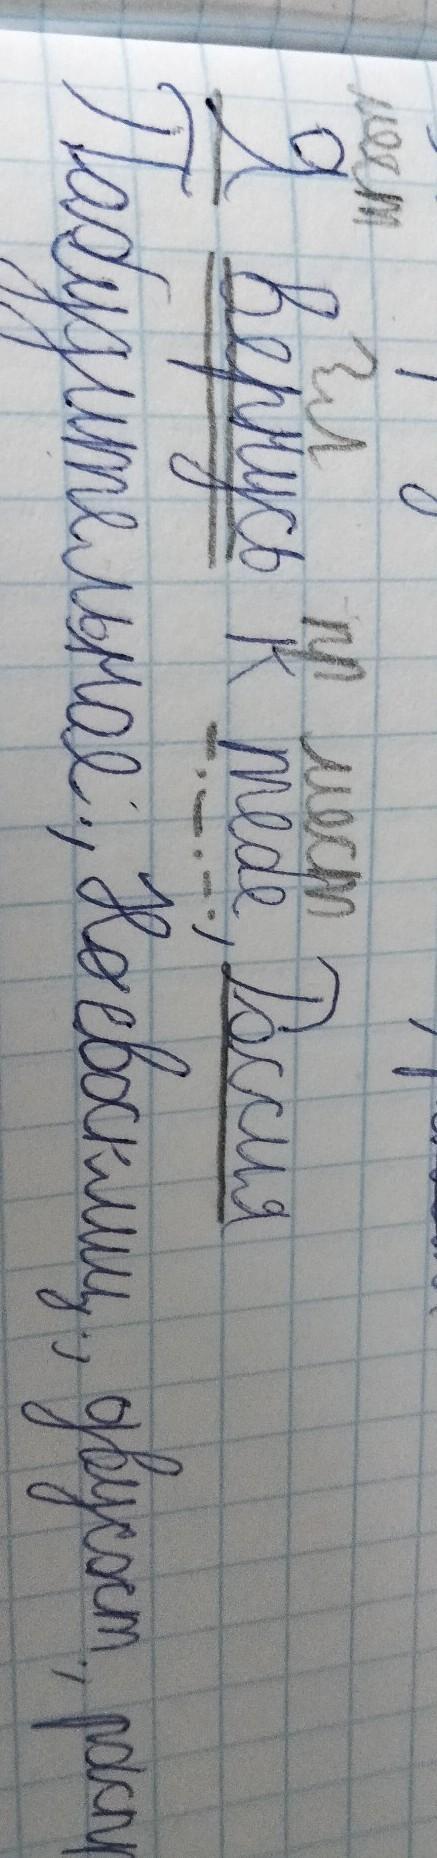 мест гл пр мест
Я вернусь к тебе, Россия
Пабудительнае., Невосклиц., двусост., расп